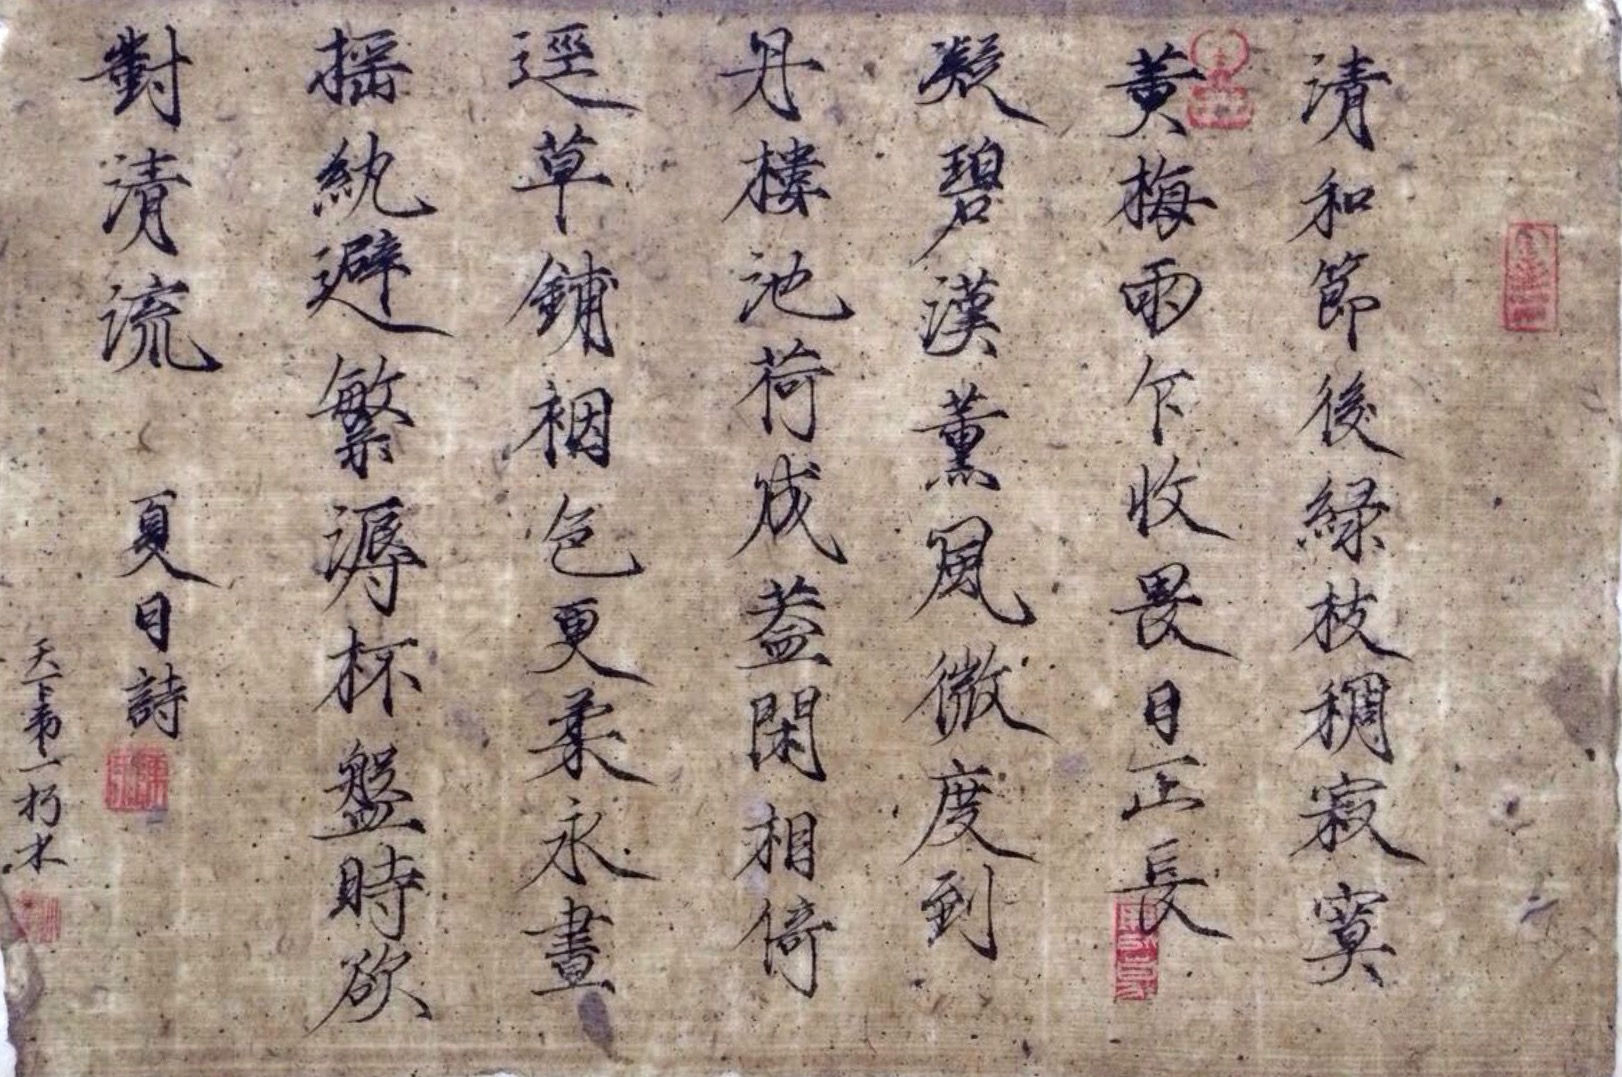 清和節後緑枝稠寂寞
黄梅雨乍收畏日正長
凝碧漢薰風微度到
丹樓池荷成葢閑相倚
逕草鋪裀色更柔永晝
揺紈避繁溽杯盤時欲
對清流 夏日詩
天下第一朽木